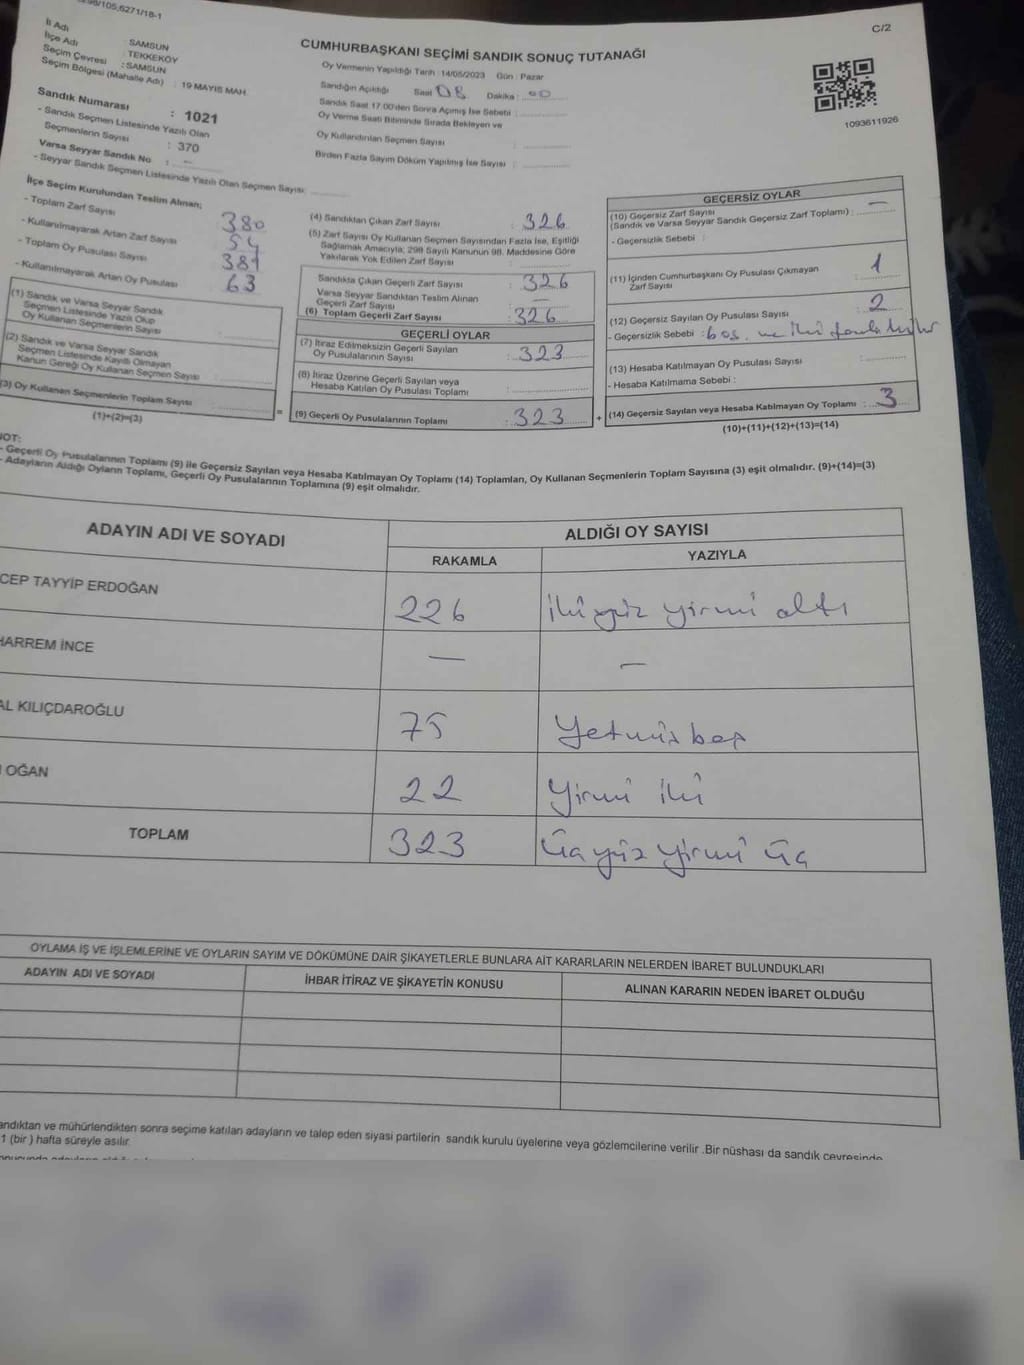 298/105,6271/18-1
C/2
CUMHURBAŞKANI SEÇİMİ SANDIK SONUÇ TUTANAĞI
İl Adı : SAMSUN
İlçe Adı : TEKKEKÖY
Seçim Çevresi : SAMSUN
Seçim Bölgesi (Mahalle Adı) : 19 MAYIS MAH.
Sandık Numarası : 1021
- Sandık Seçmen Listesinde Yazılı Olan
Seçmenlerin Sayısı : 370
Varsa Seyyar Sandık No : -
- Seyyar Sandık Seçmen Listesinde Yazılı Olan Seçmen Sayısı:
Oy Vermenin Yapıldığı Tarih :14/05/2023 Gün : Pazar
Sandığın Açıldığı Saat 08 Dakika : 00
Sandık Saat 17.00'den Sonra Açımış İse Sebebi :
Oy Verme Saati Bitiminde Sırada Bekleyen ve
Oy Kullandırılan Seçmen Sayısı :
Birden Fazla Sayım Döküm Yapılmış İse Sayısı :
1093611926
İlçe Seçim Kurulundan Teslim Alınan;
- Toplam Zarf Sayısı 380
- Kullanılmayarak Artan Zarf Sayısı 54
- Toplam Oy Pusulası Sayısı 389
- Kullanılmayarak Artan Oy Pusulası 63
(1) Sandık ve Varsa Seyyar Sandık
Seçmen Listesinde Yazılı Olup
Oy Kullanan Seçmenlerin Sayısı :
(2) Sandık ve Varsa Seyyar Sandık
Seçmen Listesinde Kayıtlı Olmayan
Kanun Gereği Oy Kullanan Seçmen Sayısı :
(3) Oy Kullanan Seçmenlerin Toplam Sayısı :
(1)+(2)=(3)
=
(4) Sandıktan Çıkan Zarf Sayısı : 326
(5) Zarf Sayısı Oy Kullanan Seçmen Sayısından Fazla İse, Eşitliği
Sağlamak Amacıyla; 298 Sayılı Kanunun 98. Maddesine Göre
Yakılarak Yok Edilen Zarf Sayısı :
Sandıkta Çıkan Geçerli Zarf Sayısı : 326
Varsa Seyyar Sandıktan Teslim Alınan
Geçerli Zarf Sayısı : -
(6) Toplam Geçerli Zarf Sayısı : 326
GEÇERLİ OYLAR
(7) İtiraz Edilmeksizin Geçerli Sayılan
Oy Pusulalarının Sayısı : 323
(8) İtiraz Üzerine Geçerli Sayılan veya
Hesaba Katılan Oy Pusulası Toplamı :
(9) Geçerli Oy Pusulalarının Toplamı : 323
+
GEÇERSİZ OYLAR
(10) Geçersiz Zarf Sayısı
(Sandık ve Varsa Seyyar Sandık Geçersiz Zarf Toplamı) : -
- Geçersizlik Sebebi :
(11) İçinden Cumhurbaşkanı Oy Pusulası Çıkmayan
Zarf Sayısı : 1
(12) Geçersiz Sayılan Oy Pusulası Sayısı : 2
- Geçersizlik Sebebi : boş ve iki
(13) Hesaba Katılmayan Oy Pusulası Sayısı :
- Hesaba Katılmama Sebebi :
(14) Geçersiz Sayılan veya Hesaba Katılmayan Oy Toplamı : 3
(10)+(11)+(12)+(13)=(14)
NOT:
- Geçerli Oy Pusulalarının Toplamı (9) ile Geçersiz Sayılan veya Hesaba Katılmayan Oy Toplamı (14) Toplamları, Oy Kullanan Seçmenlerin Toplam Sayısına (3) eşit olmalıdır. (9)+(14)=(3)
- Adayların Aldığı Oyların Toplamı, Geçerli Oy Pusulalarının Toplamına (9) eşit olmalıdır.
ADAYIN ADI VE SOYADI ALDIĞI OY SAYISI
RAKAMLA YAZIYLA
CEP TAYYİP ERDOĞAN 226 iki yüz yirmi altı
HARREM İNCE - -
AL KILIÇDAROĞLU 75 Yetmiş beş
OĞAN 22 Yirmi iki
TOPLAM 323 Üç yüz yirmi üç
OYLAMA İŞ VE İŞLEMLERİNE VE OYLARIN SAYIM VE DÖKÜMÜNE DAİR ŞİKAYETLERLE BUNLARA AİT KARARLARIN NELERDEN İBARET BULUNDUKLARI
ADAYIN ADI VE SOYADI İHBAR İTİRAZ VE ŞİKAYETİN KONUSU ALINAN KARARIN NEDEN İBARET OLDUĞU
andıktan ve mühürlendikten sonra seçime katılan adayların ve talep eden siyasi partilerin sandık kurulu üyelerine veya gözlemcilerine verilir .Bir nüshası da sandık çevresinde
1 (bir ) hafta süreyle asılır.